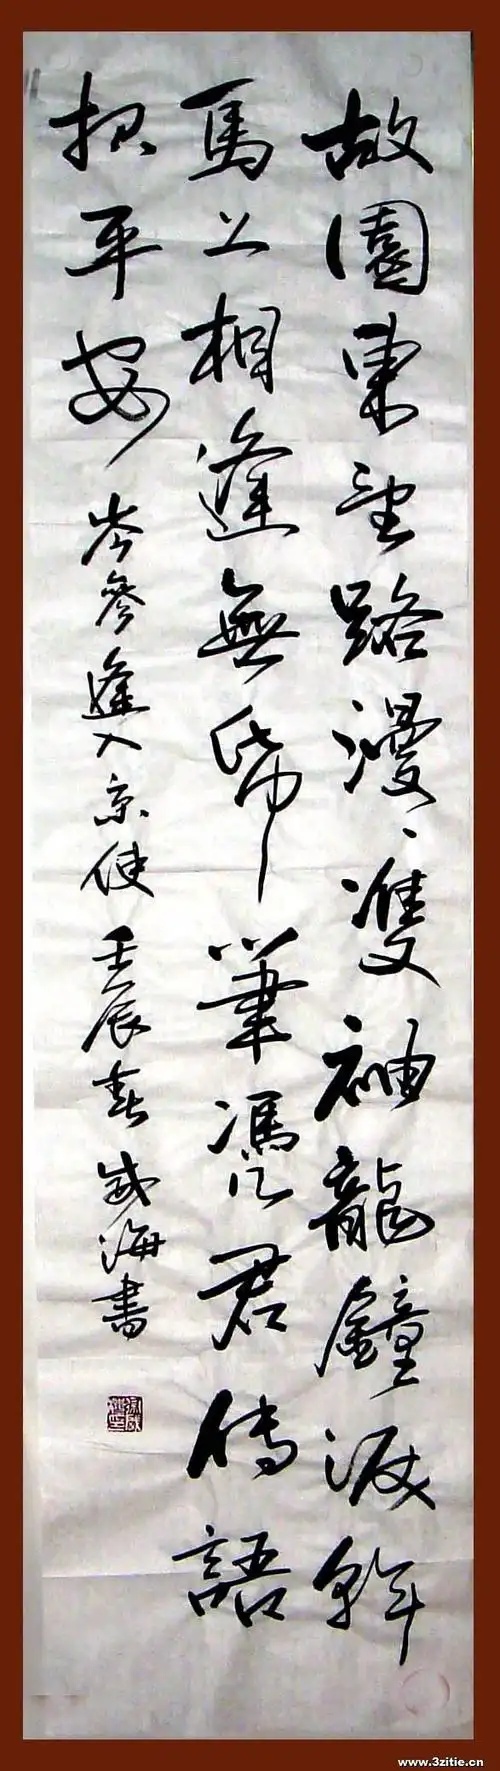 故園東望路漫、雙袖龍鐘淚乾
馬上相逢無帋筆憑君傳語
報平安 岑參逢入京使 壬辰春 海書
www.3zitie.cn